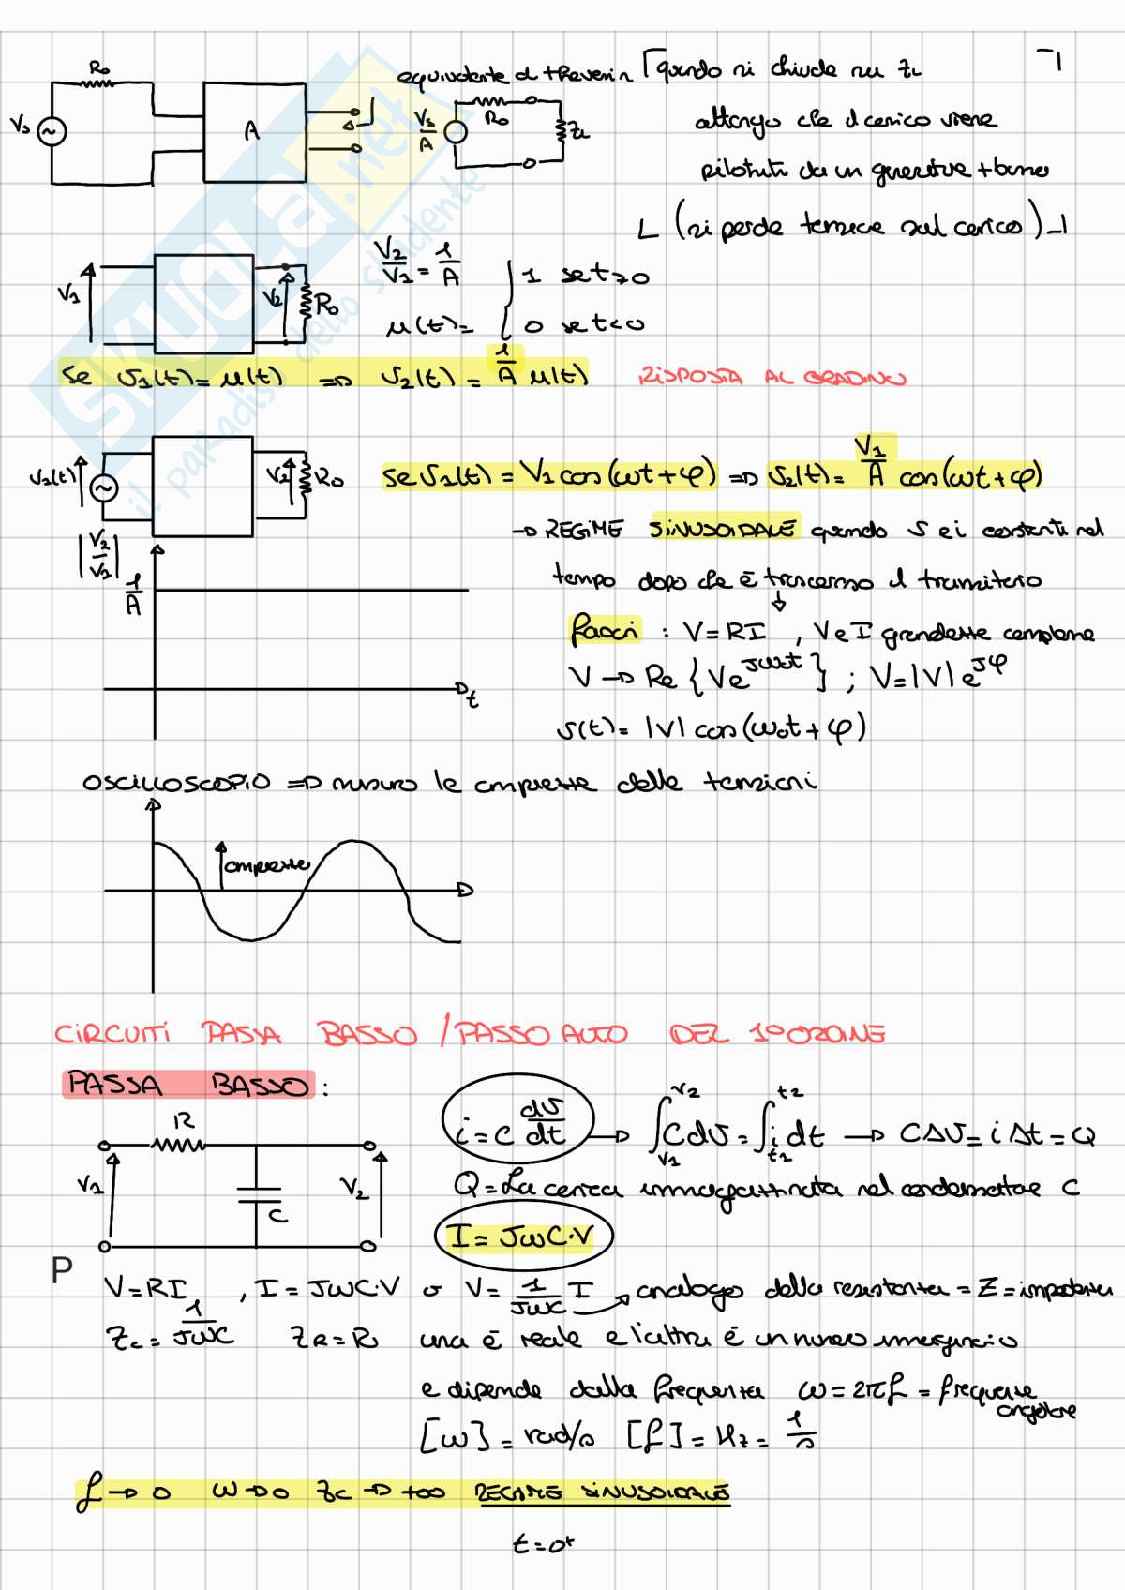 R₀
V₀
A
equivalente di thevenin
V₂/A
R₀
ZL
quando si chiude su ZL
ottengo che il carico viene
pilotato da un generatore + basso
(si perde tensione sul carico)
V₁
V₂
R₀
V₂/V₁ = 1/A
u(t) = { 1 se t>0
0 se t<0
se v₁(t) = u(t) ⇒ v₂(t) = 1/A u(t)
RISPOSTA AL GRADINO
v₁(t)
V₂
R₀
se v₁(t) = V₁ cos(ωt+φ) ⇒ v₂(t) = V₁/A cos(ωt+φ)
→ REGIME SINUSOIDALE quando v e i costanti nel
tempo dopo che è trascorso il transitorio
fasori : V=RI , V e I grandezze complesse
V → Re {Ve^jω₀t} ; V=|V|e^jφ
v(t) = |V| cos(ω₀t+φ)
|V₂/V₁|
1/A
t
OSCILLOSCOPIO ⇒ misuro le ampiezze delle tensioni
ampiezza
CIRCUITI PASSA BASSO / PASSO ALTO DEL 1° ORDINE
PASSA BASSO :
R
V₁
V₂
C
i = C dv/dt → ∫ C dv = ∫ i dt → CΔv = i Δt = Q
Q = La carica immagazzinata nel condensatore C
I = JωC·V
P
V=RI , I = JωC·V o V = 1/JωC I → analogo della resistenza = Z = impedenza
Zc = 1/JωC ZR = R una è reale e l'altra è un numero immaginario
e dipende dalla frequenza ω = 2πf = frequenza
angolare
[ω] = rad/s [f] = Hz = 1/s
f → 0 ω → 0 Zc → +∞ REGIME SINUSOIDALE
t=0⁺
SKUOLA.net
il paradiso dello studente